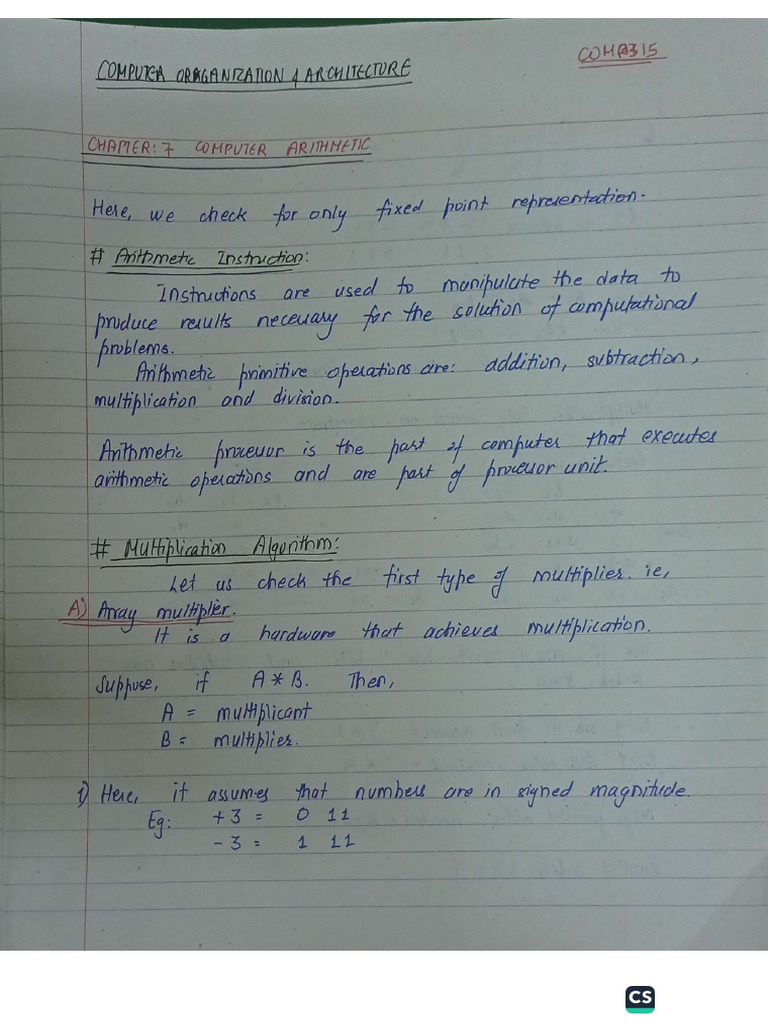 COMP315
COMPUTER ORAGANIZATION & ARCHITECTURE
CHAPTER: 7 COMPUTER ARITHMETIC
Here, we check for only fixed point representation.
# Arithmetic Instruction:
Instructions are used to manipulate the data to
produce results necessary for the solution of computational
problems.
Arithmetic primitive operations are: addition, subtraction,
multiplication and division.
Arithmetic processor is the part of computer that executes
arithmetic operations and are part of processor unit.
# Multiplication Algorithm:
Let us check the first type of multiplier. ie,
A) Array multiplier.
It is a hardware that achieves multiplication.
Suppose, if A * B. Then,
A = multiplicant
B = multiplier.
1) Here, it assumes that numbers are in signed magnitude.
Eg: +3 = 0 11
-3 = 1 11
CS